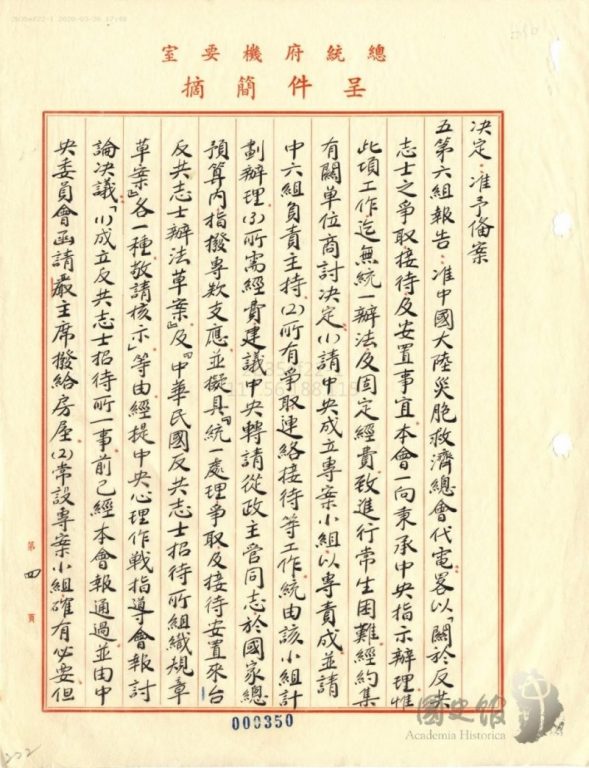 總統府機要室
呈件簡摘
決定：准予備案
五第六組報告：准中國大陸災胞救濟總會代電畧以「關於反共
志士之爭取接待及安置事宜本會一向秉承中央指示辦理惟
此項工作迄無統一辦法及固定經費致進行常生困難經約集
有關單位商討決定⑴請中央成立專案小組以專責成並請
中六組負責主持⑵所有爭取連絡接待等工作統由該小組計
劃辦理⑶所需經費建議中央轉請從政主管同志於國家總
預算內指撥專款支應並擬具『統一處理爭取及接待安置來台
反共志士辦法草案』及『中華民國反共志士招待所組織規章
草案』各一種敬請核示」等由經提中央心理作戰指導會報討
論決議「⑴成立反共志士招待所一事前已經本會報通過並由中
央委員會函請嚴主席撥給房屋⑵常設專案小組確有必要但
第四頁
000350
國史館
Academia Historica